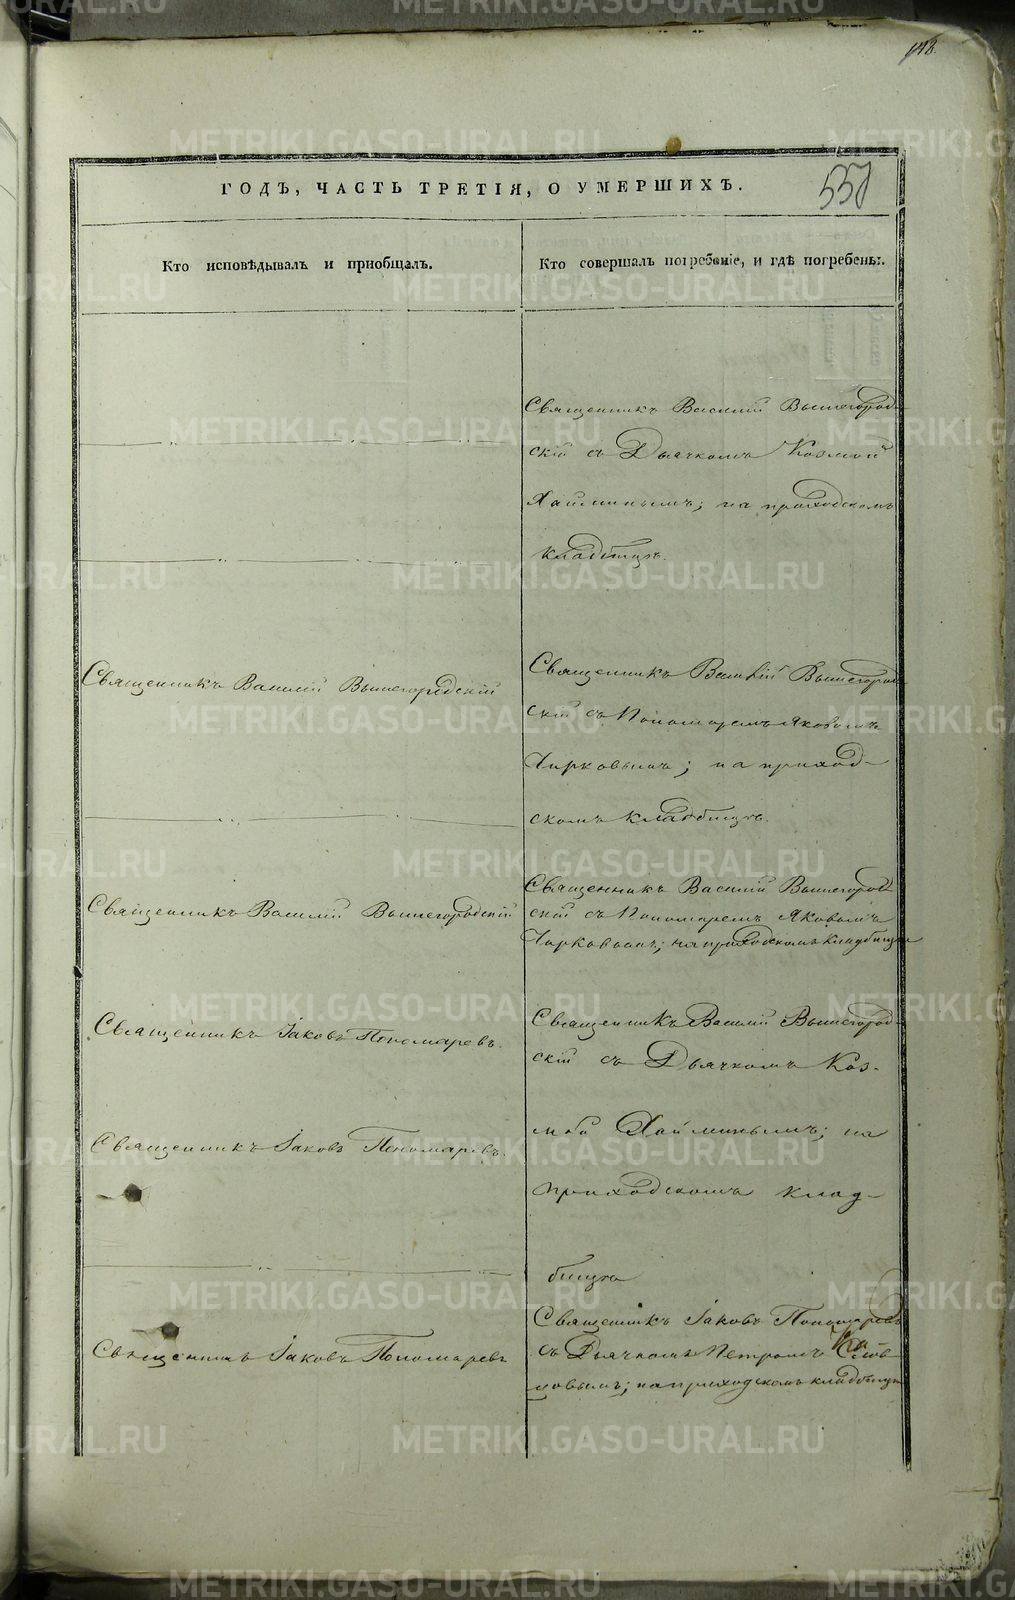 148.
557
ГОДЪ, ЧАСТЬ ТРЕТІЯ, О УМЕРШИХЪ.
Кто исповѣдывалъ и пріобщалъ.
Кто совершалъ погребеніе, и гдѣ погребены.
Священникъ Василій Вышегород-
скій съ Дьячкомъ Козмой
Хайминымъ; на приходскомъ
кладбищѣ.
Священникъ Василій Вышегородскій
Священникъ Василій Вышегород-
скій съ Пономаремъ Яковомъ
Чирковымъ; на приход-
скомъ кладбищѣ.
Священникъ Василій Вышегородскій
Священникъ Василій Вышегород-
скій съ Пономаремъ Яковомъ
Чирковымъ; на приходскомъ кладбищѣ
Священникъ Іаковъ Пономаревъ.
Священникъ Василій Вышегород-
скій съ Дьячкомъ Коз-
Священникъ Іаковъ Пономаревъ.
мой Хайминымъ; на
приходскомъ клад-
бищѣ
Священникъ Іаковъ Пономаревъ
Священникъ Іаковъ Пономаревъ
съ Дьячкомъ Петромъ
цовымъ; на приходскомъ кладбищѣ
METRIKI.GASO-URAL.RU